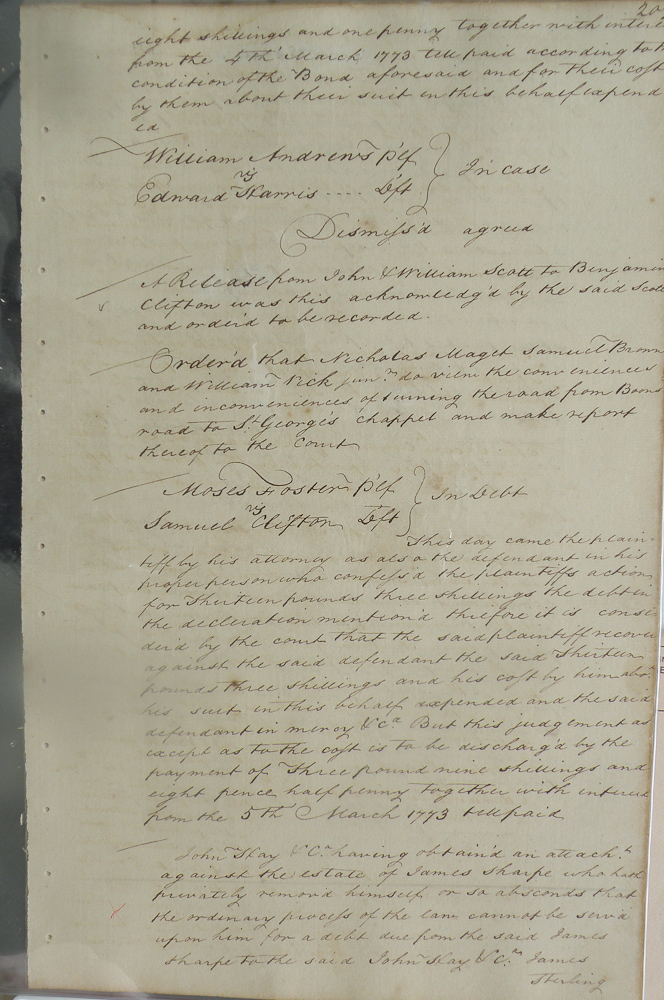 20
eight shillings and one penny together with inter
from the 4th March 1773 till paid according to
condition of the Bond aforesaid and for their cost
by them about their suit in this behalf expend
ed
William Andrews Plf
vs
In case
Edward Harris .... Dft
Dismiss'd agreed
A Release from John & William Scott to Benjamin
Clifton was this acknowledg'd by the said Scott
and order'd to be recorded.
Order'd that Nicholas Maget Samuel Brown
and William Vick junr. do view the conveniences
and inconveniences of turning the road from Boons
road to St. George's chappel and make report
thereof to the Court
Moses Foster Plf
vs
In Debt
Samuel Clifton Dft
This day came the plain-
tiff by his attorney as also the defendant in his
proper person who confess'd the plaintiffs action
for Thirteen pounds three shillings the debt in
the decleration mention'd therefore it is consi
der'd by the court that the said plaintiff recover
against the said defendant the said Thirteen
pounds three shillings and his cost by him abt.
his suit in this behalf expended and the said
defendant in mercy &ca But this judgement as
except as to the cost is to be discharg'd by the
payment of Three pound nine shillings and
eight pence half penny together with interes
from the 5th March 1773 till paid
John Hay & Ca having obtain'd an attacht.
against the estate of James Sharpe who hath
privately remov'd himself or so absconds that
the ordinary process of the law cannot be serv'd
upon him for a debt due from the said James
Sharpe to the said John Hay & Ca. James
Sterling